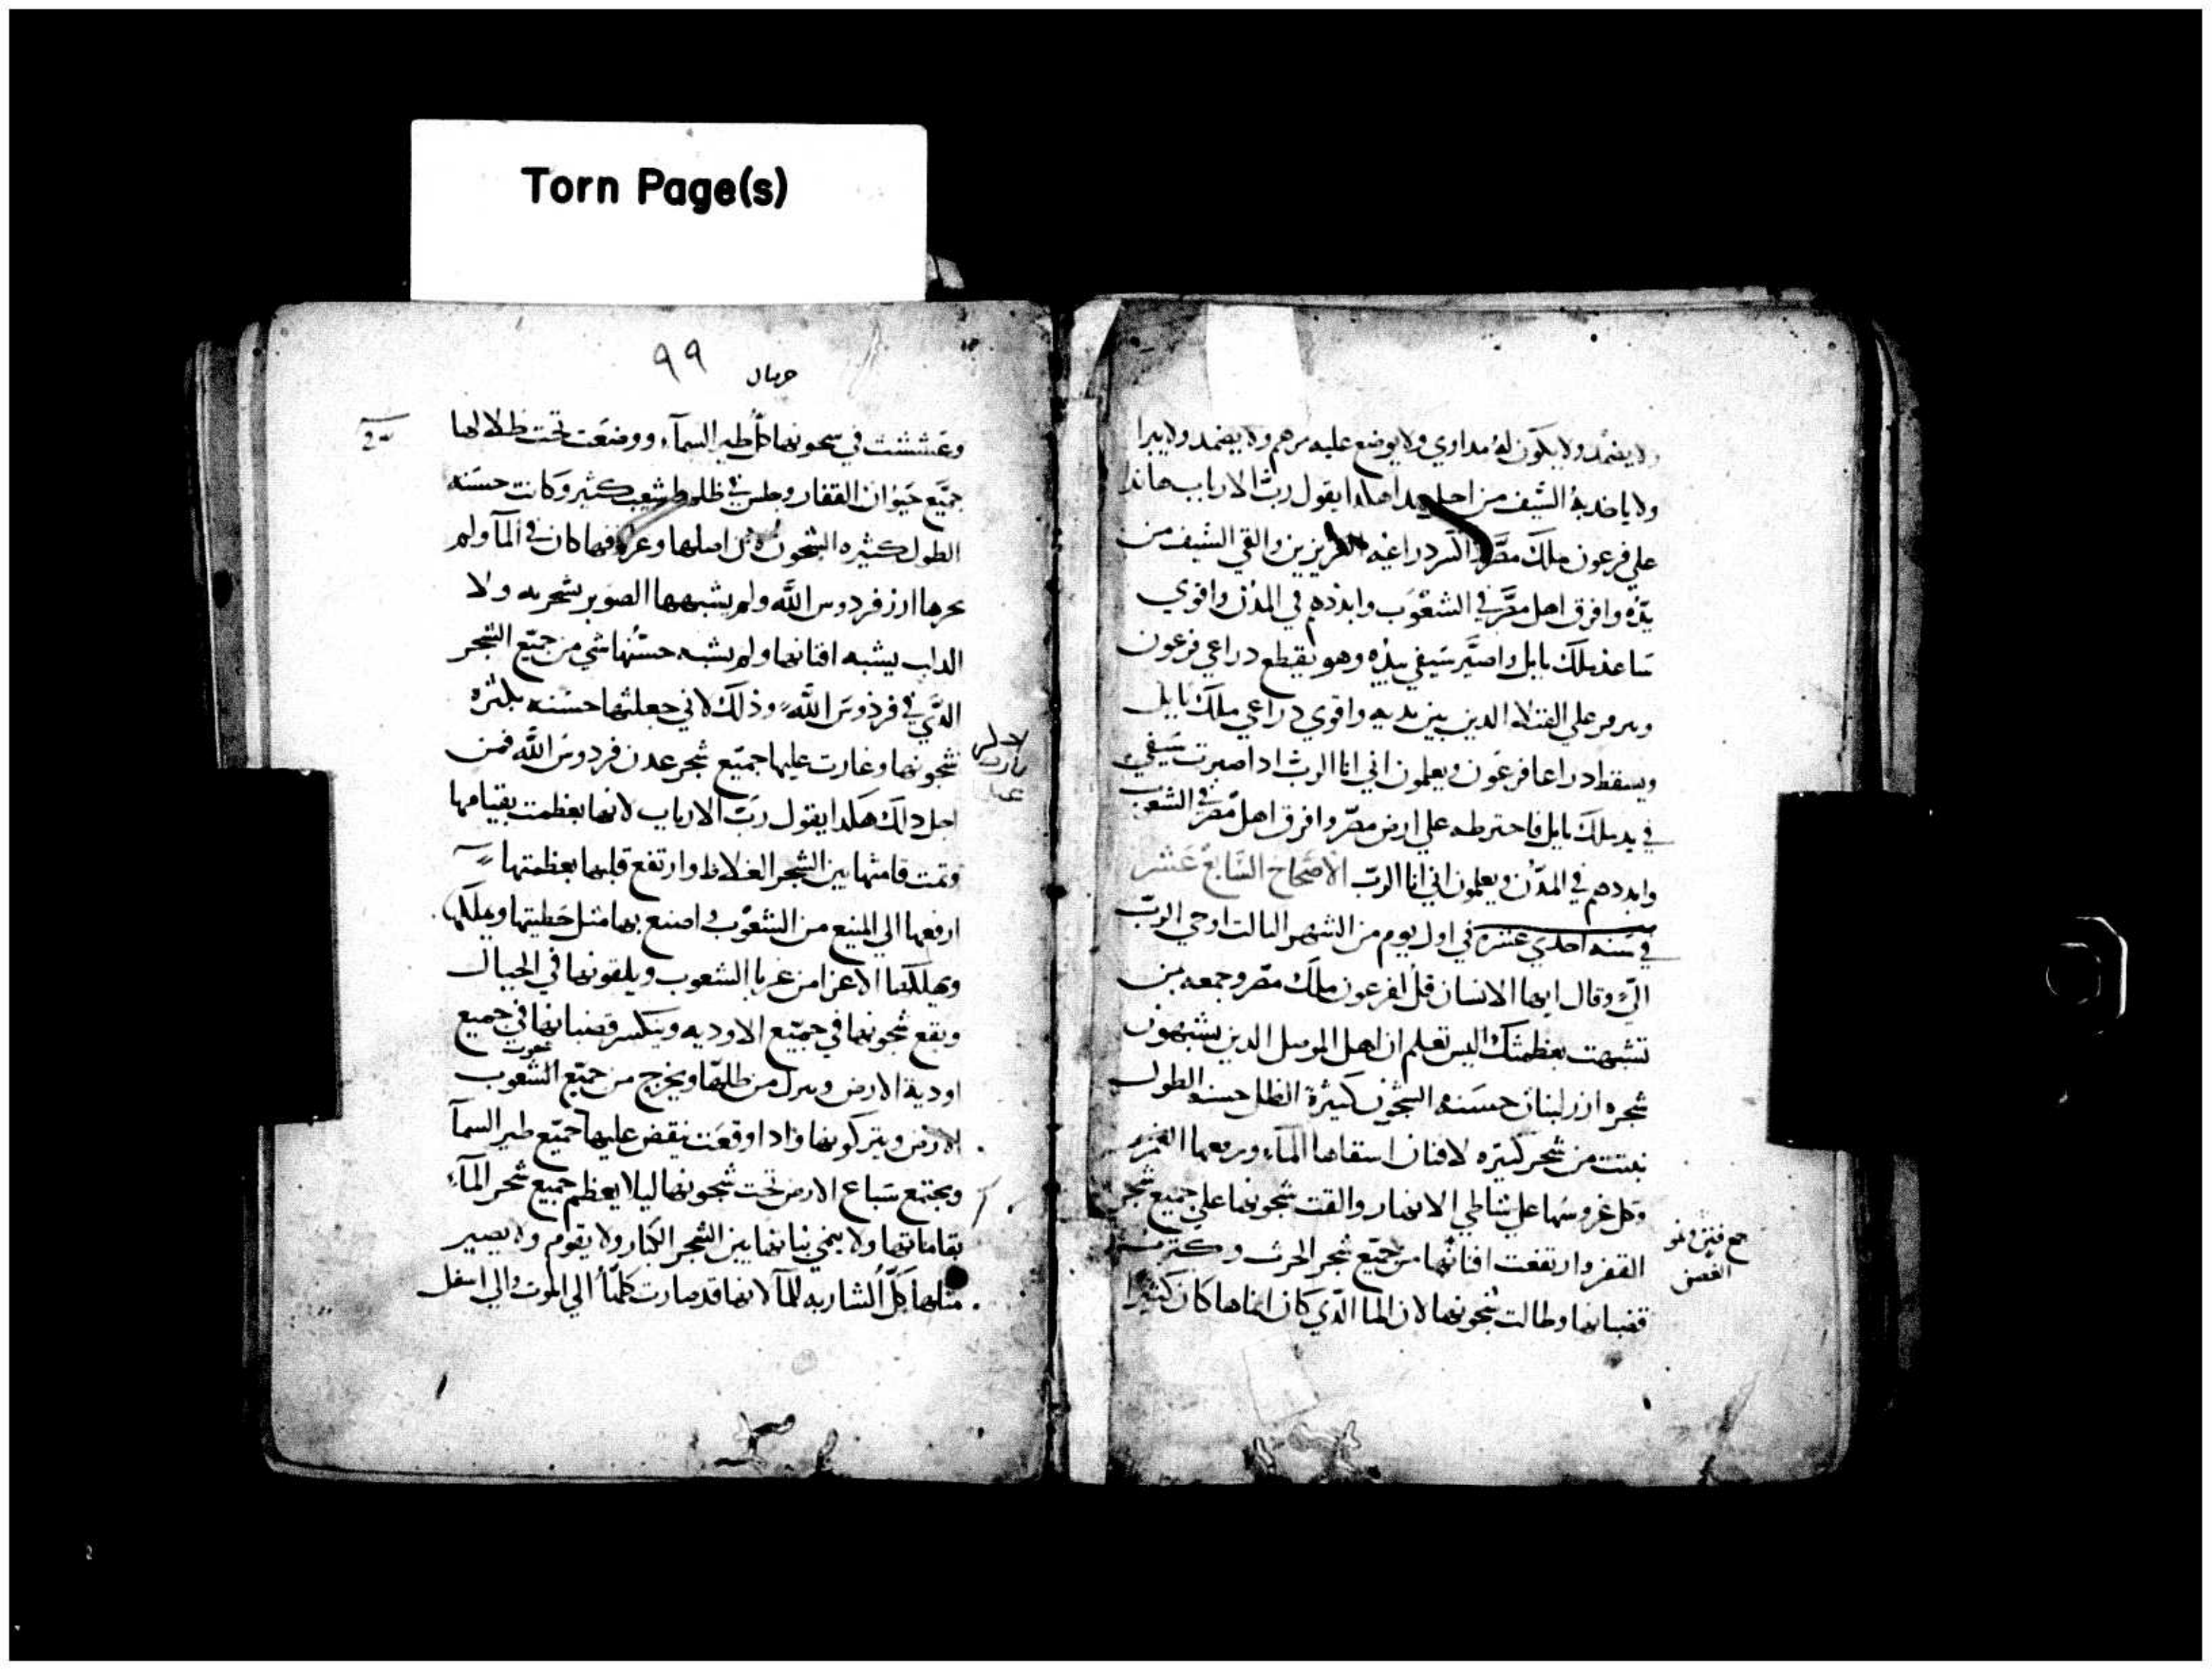 Torn Page(s)
ولا يضمد ولا يكون له مداوي ولا يوضع عليه مرهم ولا يضمد ولا يبرا
ولا ياخد به السيف من اجل هدا هكدا يقول رب الارباب هاندا
علي فرعون ملك مصر اكسر دراعيه العزيزين والقي السيف من
يده وافرق اهل مصر في الشعوب وابددهم في المدن واقوي
ساعد ملك بابل واصير سيفي بيده وهو يقطع دراعي فرعون
علي القتلا الدين بين يديه واقوي دراعي ملك بابل
ويسقط دراعا فرعون ويعلمون اني انا الرب ادا صيرت سيفي
في يد ملك بابل فاخترطه علي ارض مصر وافرق اهل مصر في الشعوب
وابددهم في المدن ويعلمون اني انا الرب الاصحاح السابع عشر
في سنه احدي عشره في اول يوم من الشهر التالت اوحي الرب
الي وقال ايها الانسان قل لفرعون ملك مصر وجمعه بمن
تشبهت بعظمتك اليس تعلم ان اهل الموصل الدين يشبهون
شجره ارز لبنان حسنه الشجون كثيرة الظل حسنه الطول
نبتت من شجر كثيره الافنان اسقاها الماء ورفعها الغمر
وكل غروسها علي شاطي الانهار والقت شجونها علي جميع شجر
القفر وارتفعت افنانها من جميع شجر الحرث وكثرت
قضبانها وطالت شجونها لان الما الذي كان اتاها كان كثيرا
جمع فنن وهو
الغصن
٩٩
حزقيال
وعششت في شجونها كل طير السماء ووضعت تحت ظلالها
جميع حيوان القفار وجلس في ظلها شعب كثير وكانت حسنه
الطول كثيره الشجون لان اصلها وعروقها كان في الما ولم
ارز فردوس الله ولم يشبهها الصنوبر بشجرته ولا
الدلب يشبه افنانها ولم يشبه حسنها شي من جميع الشجر
الذي في فردوس الله وذلك لاني جعلتها حسنه بكثرة
شجونها وغارت عليها جميع شجر عدن فردوس الله فمن
اجل دلك هكدا يقول رب الارباب لانها تعظمت بقيامها
وتمت قامتها بين الشجر الغلاظ وارتفع قلبها بعظمتها
ادفعها الي المنيع من الشعوب واصنع بها مثل خطيتها
ويهلكها الاعزا من غربا الشعوب ويلقونها في الجبال
ويقع شجونها في جميع الاوديه وينكسر قضبانها في جميع
اودية الارض وينزل من ظلها ويخرج من جميع الشعوب
الارض ويتركونها وادا وقعت ينقض عليها جميع طير السما
ويجتمع سباع الارض تحت شجونها ليلا يعظم جميع شجر الماء
بقاماتها ولا ينمي نباتها بين الشجر الكبار ولا يقوم ولا يصير
مثلها كل الشاربه للما لانها قد صارت كلها الي الموت والي اسفل